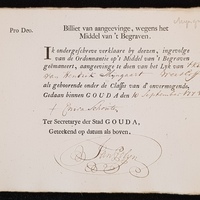 Pro Deo.
Billiet van aangeevinge, wegens het
Middel van 't Begraven.
Ik ondergeschreve verklaare by deezen, ingevolge
van de Ordonnantie op 't Middel van 't Begraven
geëmaneert, aangevinge te doen van het Lyk van
van Hendrik
als gehoorende onder de Classe van d'onvermogende.
Gedaan binnen GOUDA den 10 September
Ter Secretarye der Stad GOUDA,
Geteekend op datum als boven.